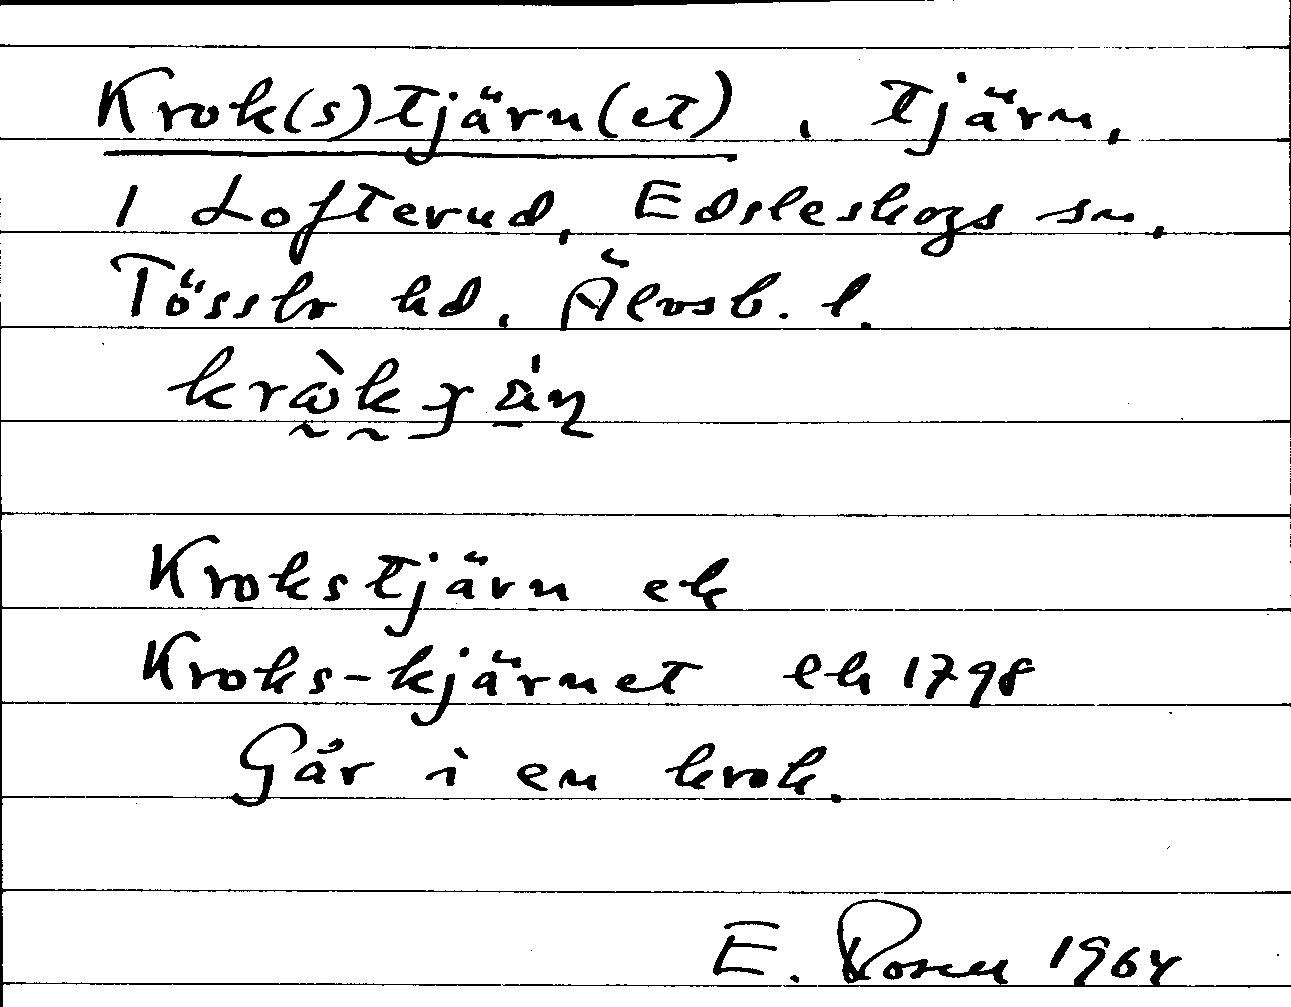 Krok(s)tjärn(et), tjärn,
i Lofterud, Edsleskogs sn,
Tössbo hd, Älvsb. l.
Krokstjärn ek
Kroks-kjärnet lh 1798
Går i en krok.
E. Rosell 1964